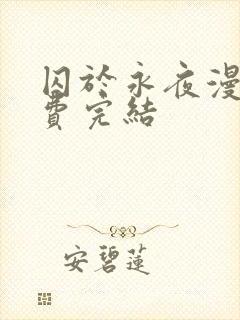 囚於永夜漫
費完結
安碧蓮